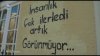 İnsanlık
Çok ilerledi
artık
Görünmüyor...